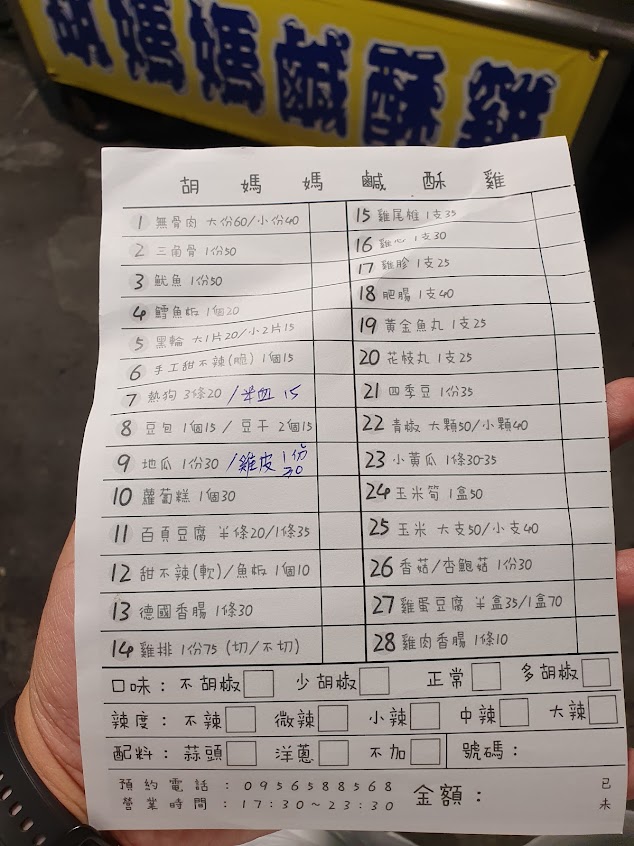 胡媽媽鹹酥雞
胡媽媽鹹酥雞
1 無骨肉 大份60/小份40
2 三角骨 1份50
3 魷魚 1份50
4 鱈魚板 1個20
5 黑輪 大1片20/小2片15
6 手工甜不辣(脆) 1個15
7 熱狗 3條20 /米血 15
8 豆包 1個15 / 豆干 2個15
9 地瓜 1份30 /雞皮 1份30
10 蘿蔔糕 1個30
11 百頁豆腐 半條20/1條35
12 甜不辣(軟)/魚板 1個10
13 德國香腸 1條30
14 雞排 1份75 (切/不切)
15 雞尾椎 1支35
16 雞心 1支30
17 雞胗 1支25
18 肥腸 1支40
19 黃金魚丸 1支25
20 花枝丸 1支25
21 四季豆 1份35
22 青椒 大顆50/小顆40
23 小黃瓜 1條30-35
24 玉米筍 1盒50
25 玉米 大支50/小支40
26 香菇/杏鮑菇 1份30
27 雞蛋豆腐 半盒35/1盒70
28 雞肉香腸 1條10
口味：不胡椒 少胡椒 正常 多胡椒
辣度：不辣 微辣 小辣 中辣 大辣
配料：蒜頭 洋蔥 不加 號碼：
預約電話：0956588568
營業時間：17:30～23:30
金額：
已
未